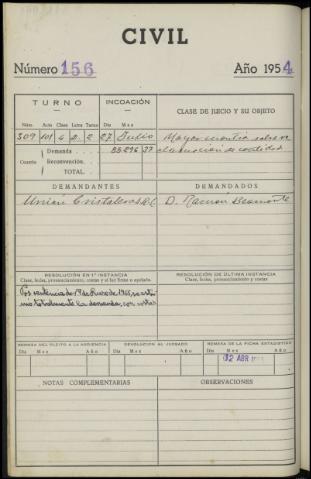 CIVIL
Número 156 Año 1954
TURNO INCOACIÓN CLASE DE JUICIO Y SU OBJETO
Núm. Art. Clase Letra Tarea Día Mes
309 101 4 2 2 27 Julio Mayor cuantía sobre
Demanda 88296 37 reclamación de cantidad
Cuantía Reconvención.
TOTAL
DEMANDANTES DEMANDADOS
Unión Cristalera D. Ramón
RESOLUCIÓN EN 1ª INSTANCIA RESOLUCIÓN DE ÚLTIMA INSTANCIA
Clase, fecha, pronunciamiento, costas y si fué firme o apelada. Clase, fecha, pronunciamiento y costas
Por sentencia de de de 1955, se
totalmente la demanda, sin costas
REMESA DEL PLEITO A LA AUDIENCIA DEVOLUCIÓN AL JUZGADO REMESA DE LA FICHA ESTADÍSTICA
Día Mes Año Día Mes Año Día Mes Año
12 ABR
NOTAS COMPLEMENTARIAS OBSERVACIONES